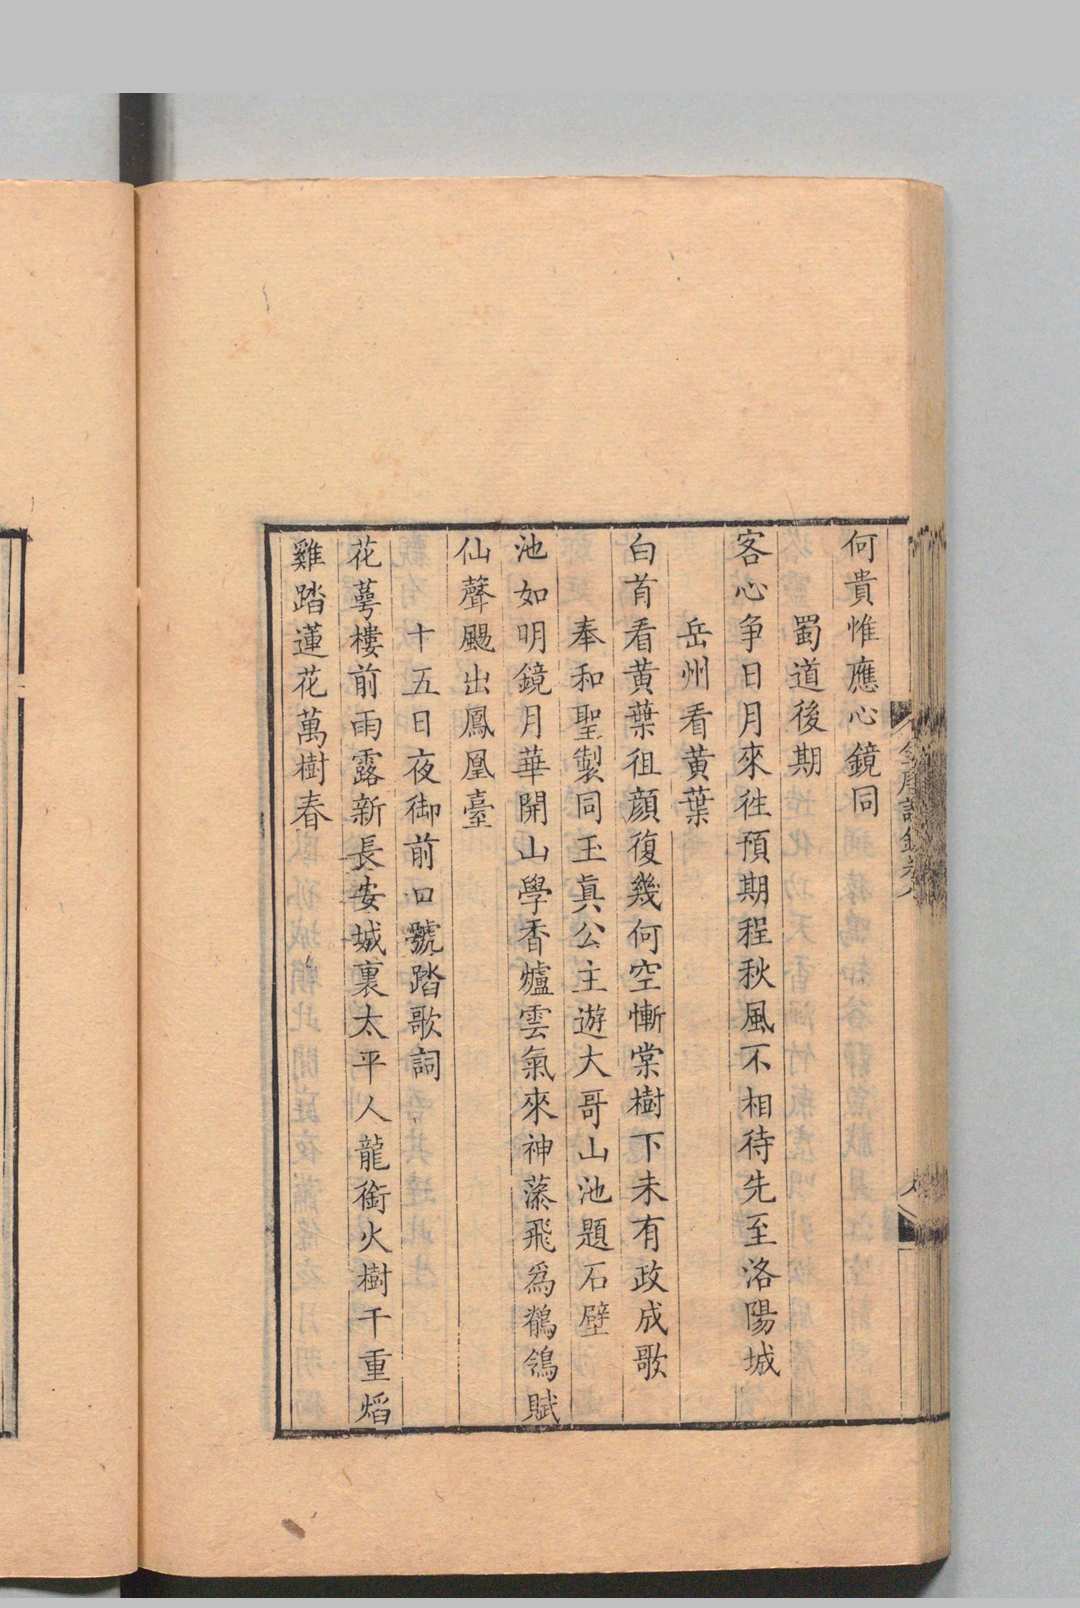 何貴惟應心鏡同
蜀道後期
客心争日月來往預期程秋風不相待先至洛陽城
岳州看黄葉
白首看黄葉徂顔復幾何空慚棠樹下未有政成歌
奉和聖製同玉真公主遊大哥山池題石壁
池如明鏡月華開山學香爐雲氣來神藻飛爲鶺鴒賦
仙聲颺出鳳凰臺
十五日夜御前口號踏歌詞
花蕚樓前雨露新長安城裏太平人龍銜火樹千重熖
雞踏蓮花萬樹春